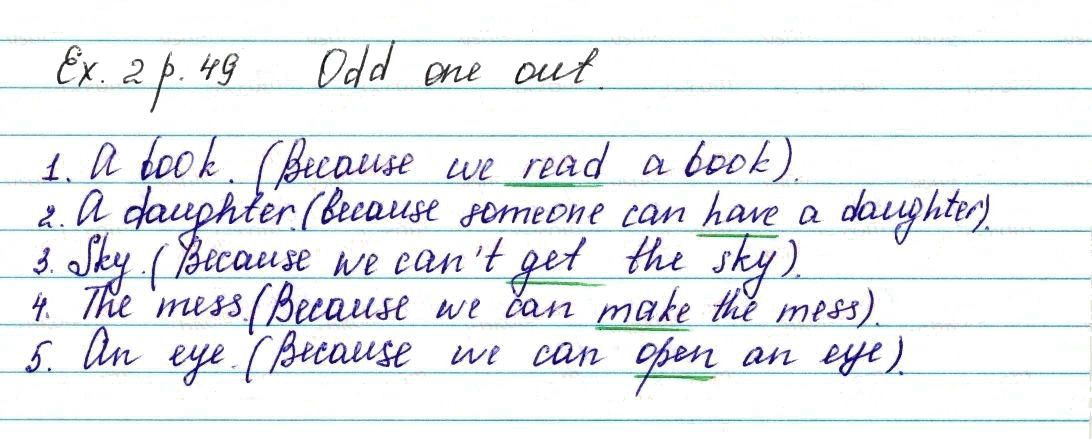 Ex. 2 p. 49 Odd one out.
1. A book. (Because we read a book).
2. A daughter. (Because someone can have a daughter).
3. Sky. (Because we can't get the sky).
4. The mess. (Because we can make the mess).
5. An eye. (Because we can open an eye).